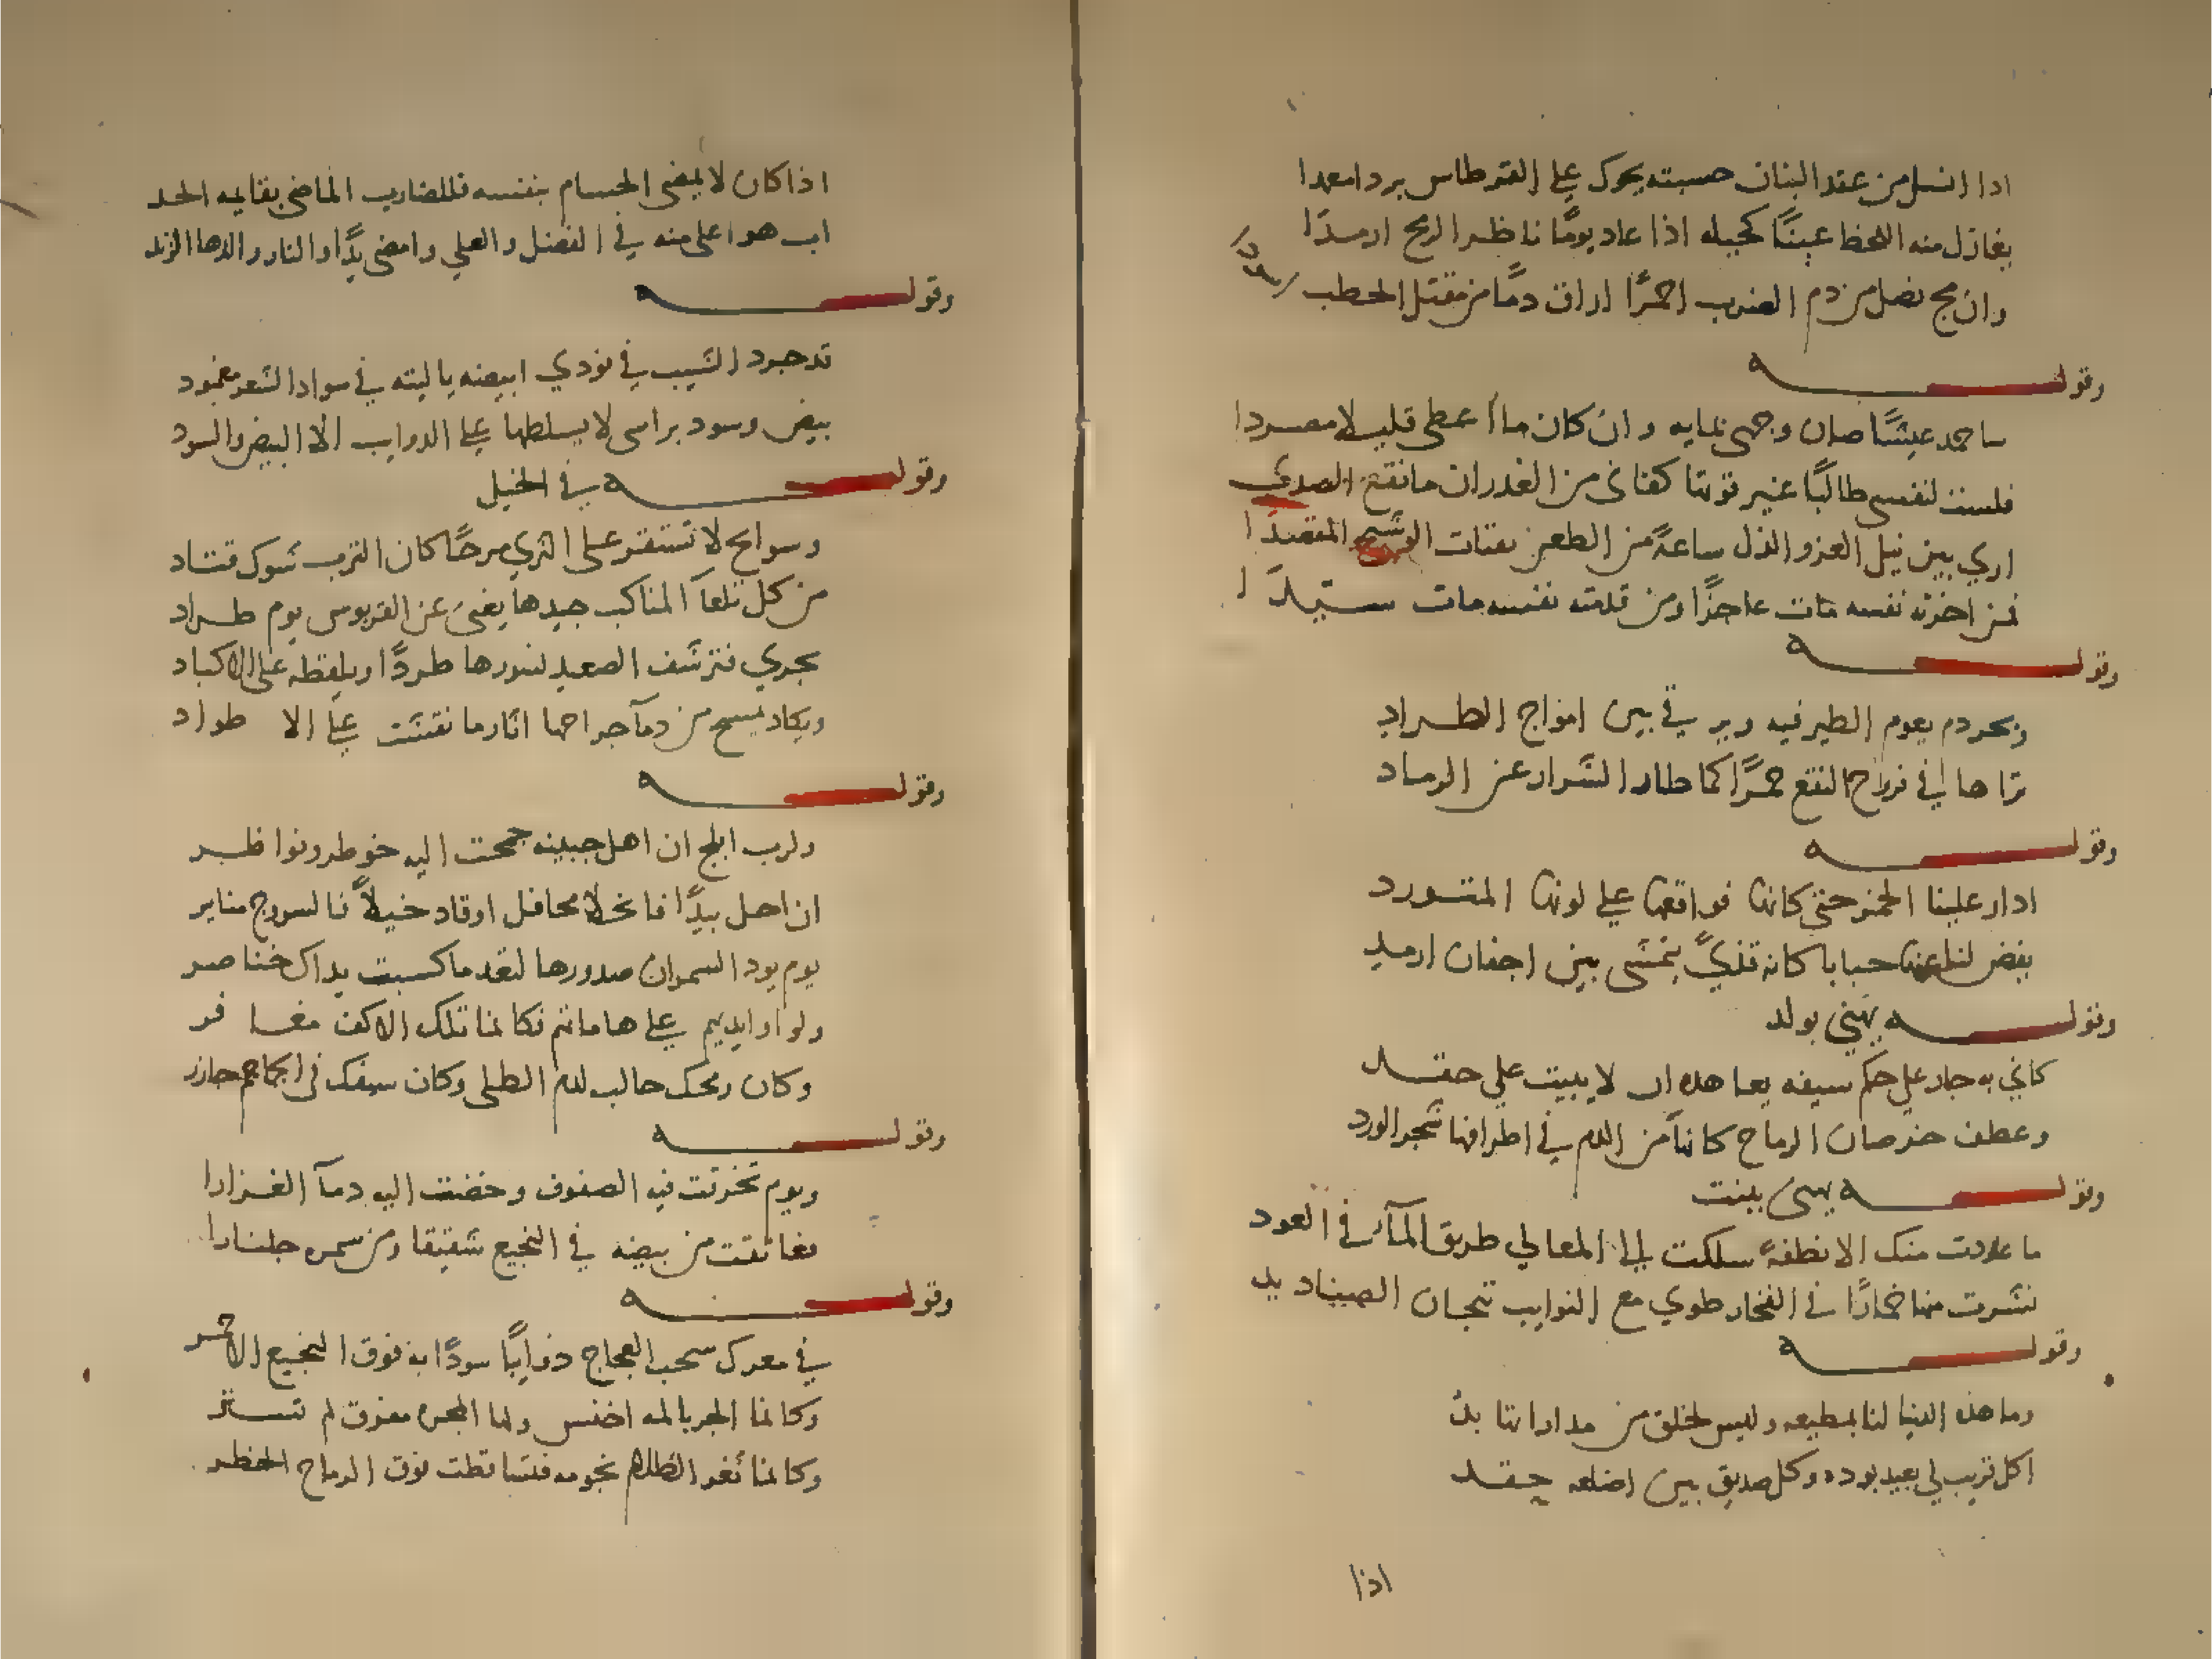 اذا انسل من عقد البنان حسبته يحوك على القرطاس بردا معمدا
يغازل منه اللحظ عينًا كحيله اذا عاد يومًا ناظر الرمح ارمدًا
وان مج نصل من دم الضرب احمرًا اراق دمًا من مقتل الخطب اسودا
وقوله
ساحمد عيشًا صان وجهي بمايه وان كان ما اعطى قليلا مصردا
فلست لنفسي طالبًا غير قوتها كفاني من الغدران ما نقع الصدى
اري بين نيل العز والذل ساعةً من الطعن تقتات الوشيج المقصدا
فمن اخرته نفسه مات عاجزًا ومن قدمته نفسه مات سيدًا
وقوله
وبحر دم يعوم الطير فيه وير في بين امواج الطراد
تراها في نواح النقع حمرًا كما طار الشرار عن الرماد
وقوله
ادار علينا الخمر حتى كانها فواقعها على لونها المتورد
يفض لنا عنها حبابا كانه قذيً يتمشى بين اجفان ارمد
وقوله يهني بولد
كاني به جار على حكم سيفه يعاهده ان لا يبيت على حقد
وعطف خرصان الرماح كانها من الدم في اطرافها شجر الورد
وقوله يهنى ببنت
ما عودت منك الا نطفة سلكت الى المعالي طريق المآثر في العود
نشرت منها خمارًا في الفخار طوي مع النوايب تيجان الصناديد
وقوله
وما هذه الدنيا لنا بمطيعه وليس لخلق من مداراتها بد
اكل قريب لي بعيد بوده وكل صديق بين اضلعه حقد
اذا
اذا كان لا يمضي الحسام بنفسه فللضارب الماضي بقايمه الحد
اب هو اعلى منه في الفضل والعلى وامضى يدًا والنار والدها الزند
وقوله
قد جرد الشيب في فودي ابيضه يا ليته في سواد الشعر مغمود
بيض وسود براسي لا يسلطها على الدوايب الا البيض والسود
وقوله في الخيل
وسوابح لا تستقر على الثري مرحًا كان الترب شوك قتاد
من كل تلعآ المناكب جيدها يغنى عن القربوس يوم طراد
يجري فترشف الصعيد لنورها طردًا ويلفظه على الاكباد
ويكاد يمسح من دمآ جراحها اثار ما نقشت على الاطواد
وقوله
ولرب ابلج ان اهل جبينه جمحت اليه خوطر ونواظر
ان احل بيدًا فانخلا محافل او قاد خيلاً فالسروج منابر
يوم يود السمر ان صدورها لنقد ما كسبت يداك خناصر
ولوا وايديهم على هاماتهم فكانما تلك الاكف مغافر
وكان رمحك حالب لدم الطلى وكان سيفك في الجماجم جازر
وقوله
ويوم تخرقت فيه الصفوف وخضت اليه دمآ الغزارا
فعانقت من بيضه في النجيع شقيقا ومن سمره جلنارا
وقوله
في معرك سحب العجاج ذوايبًا سودًا به فوق النجيع الاحمر
وكانما الجربا لمه اخنس ولها المجره مفرق لم تستر
وكانما ثغر الظلام نجومه فتساقطت فوق الرماح الخطر